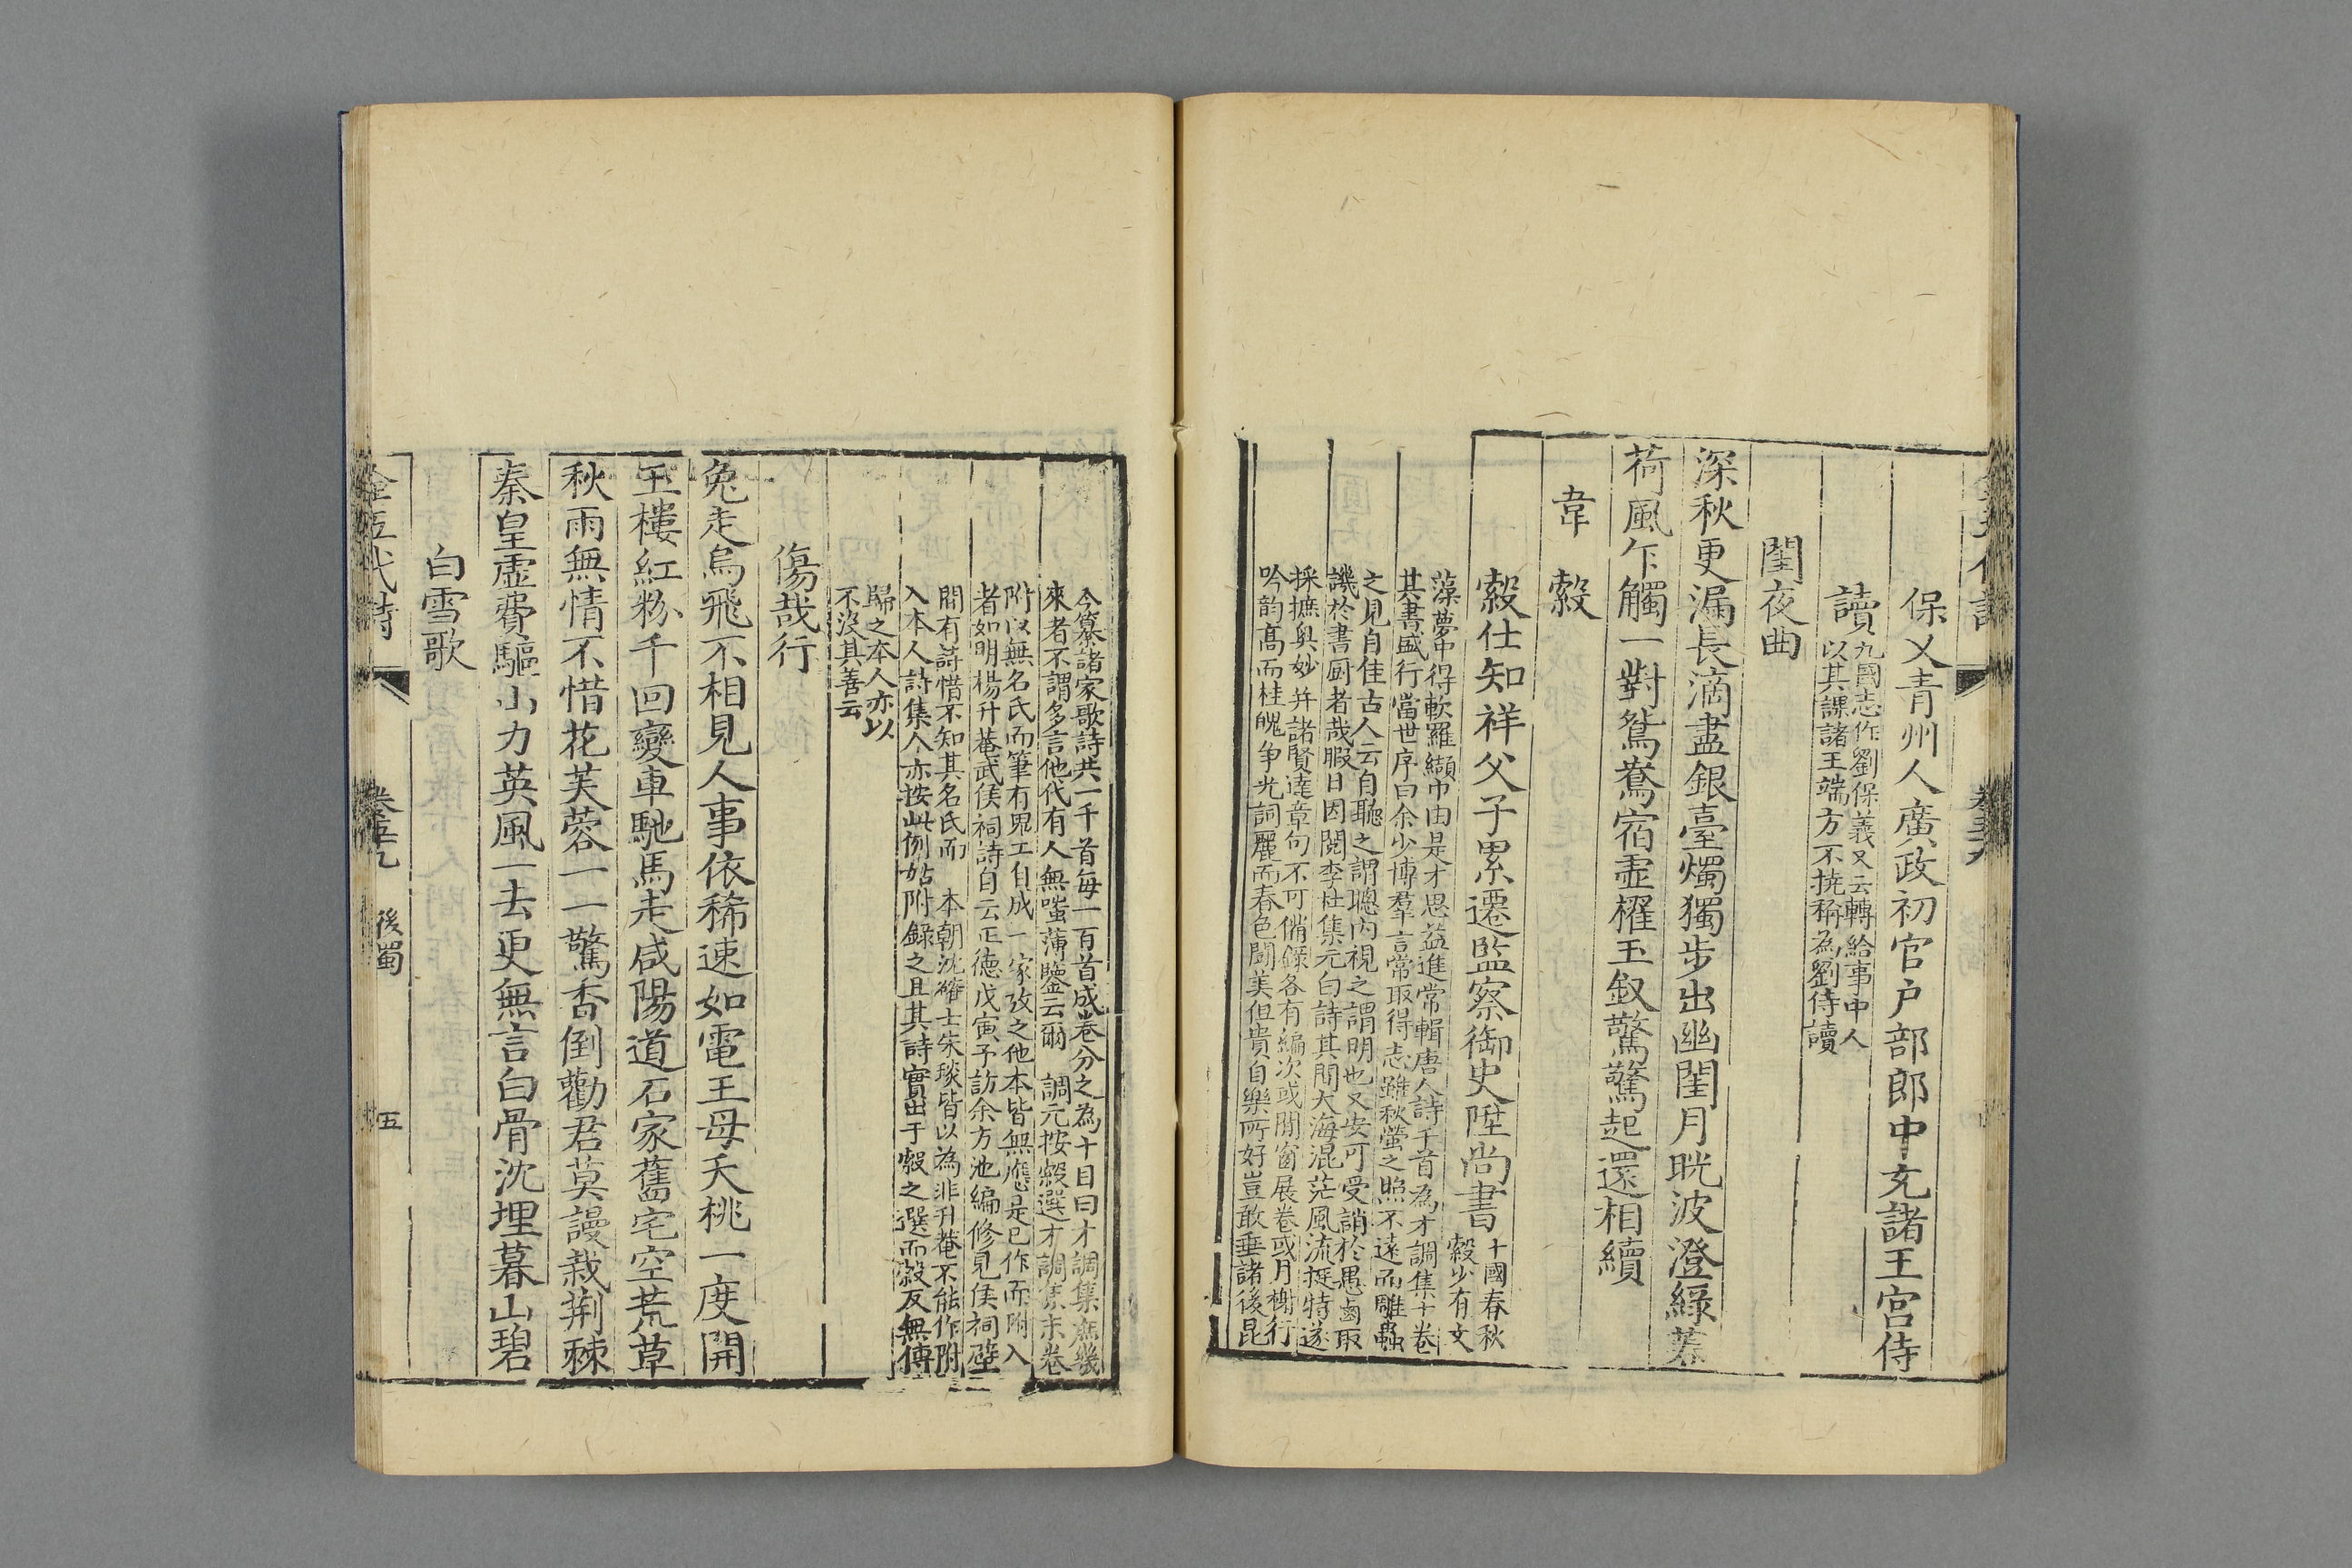 保乂青州人廣政初官户部郎中充諸王宮侍
讀
九國志作劉保義又云轉給事中人
以其課諸王端方不撓稱為劉侍讀
閨夜曲
深秋更漏長滴盡銀臺燭獨步出幽閨月晄波澄綠菶
荷風乍觸一對鴛鴦宿虛櫂玉釵驚驚起還相續
韋縠
縠仕知祥父子累遷監察御史陞尚書
十國春秋
縠少有文
藻夢中得軟羅纈巾由是才思益進常輯唐人詩千首為才調集十卷
其書盛行當世序曰余少博羣言常取得志雖秋螢之照不遠而雕蟲
之見自佳古人云自聽之謂聰內視之謂明也又安可受誚於愚鹵取
譏於書厨者哉暇日因閱李杜集元白詩其間大海混茫風流挺特遂
採摭奥妙并諸賢達章句不可備錄各有編次或閒窗展卷或月榭行
吟韵高而桂魄争光詞麗而春色鬪美但貴自樂所好豈敢垂諸後昆
今纂諸家歌詩共一千首每一百首成卷分之為十目曰才調集庶幾
來者不謂多言他代有人無嗤蒲鑒云爾 調元按縠選才調集末卷
附以無名氏而筆有畀工自成一家攷之他本皆無應是已作而附入
者如明楊升菴武侯祠詩自云正德戊寅予訪余方池編修見侯祠壁
間有詩惜不知其名氏而 本朝沈確士朱琰皆以為非升菴不能作附
入本人詩集人亦按此例姑附錄之且其詩實出于縠之選而縠反無傳
歸之本人亦以
不沒其善云
傷哉行
兔走烏飛不相見人事依稀速如電王母夭桃一度開
玉樓紅粉千回變車馳馬走咸陽道石家舊宅空荒草
秋雨無情不惜花芙蓉一一驚香倒勸君莫謾栽荆棘
秦皇虛費驅山力英風一去更無言白骨沈埋暮山碧
白雪歌
全五代詩
卷五十九 後蜀
五